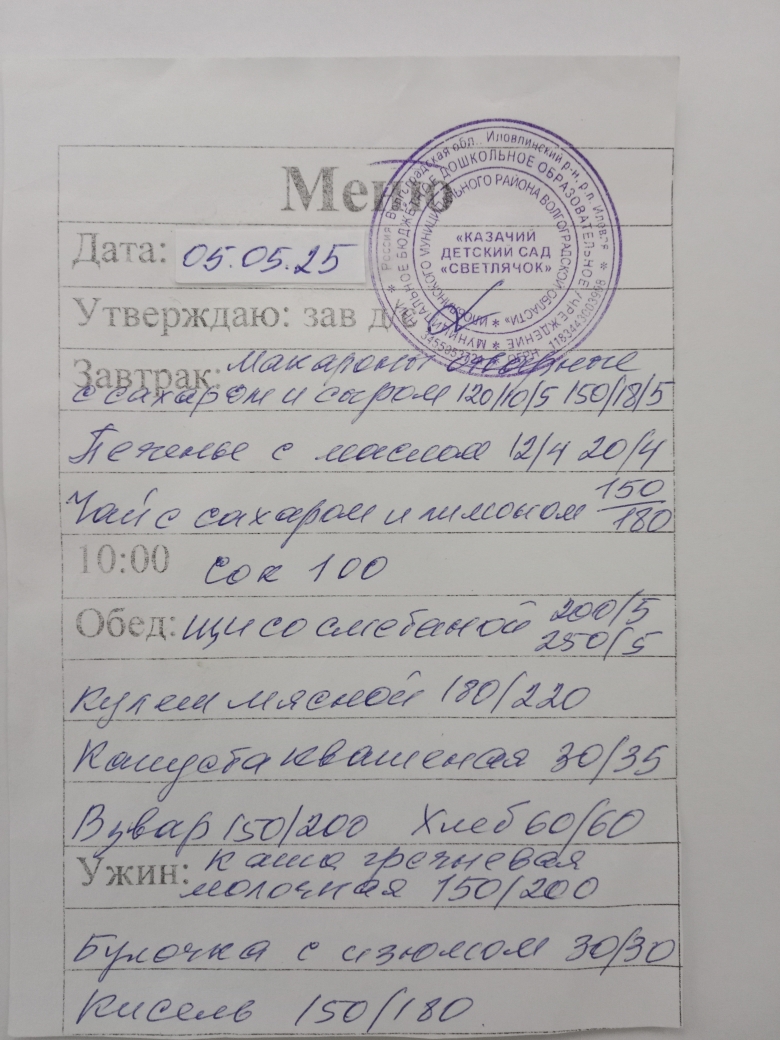 Меню
Россия Волгоградская обл., Иловлинский р-н, р.п. Иловля
МУНИЦИПАЛЬНОЕ БЮДЖЕТНОЕ ДОШКОЛЬНОЕ ОБРАЗОВАТЕЛЬНОЕ УЧРЕЖДЕНИЕ
ИЛОВЛИНСКОГО МУНИЦИПАЛЬНОГО РАЙОНА ВОЛГОГРАДСКОЙ ОБЛАСТИ
«КАЗАЧИЙ
ДЕТСКИЙ САД
«СВЕТЛЯЧОК»
ОГРН 1183443003998
Дата: 05.05.25
Утверждаю: зав д/с
Завтрак: Макароны отварные
с сахаром и сыром 120/10/5 150/18/5
Печенье с маслом 12/4 20/4
Чай с сахаром и лимоном 150/180
10:00 Сок 100
Обед: щи со сметаной 200/5
250/5
Кулеш мясной 180/220
Капуста квашеная 30/35
Взвар 150/200 Хлеб 60/60
Ужин: каша гречневая
молочная 150/200
Булочка с изюмом 30/30
Кисель 150/180